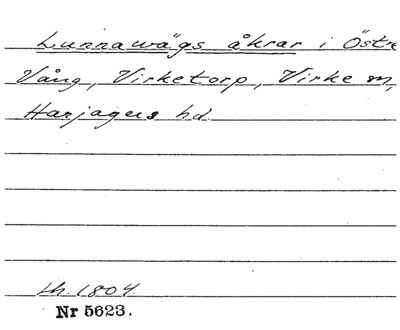 Lunnawägs åkrar i Östre
Vång, Virketorp, Virke sn,
Harjagers hd.
th. 1804.
Nr 5623.